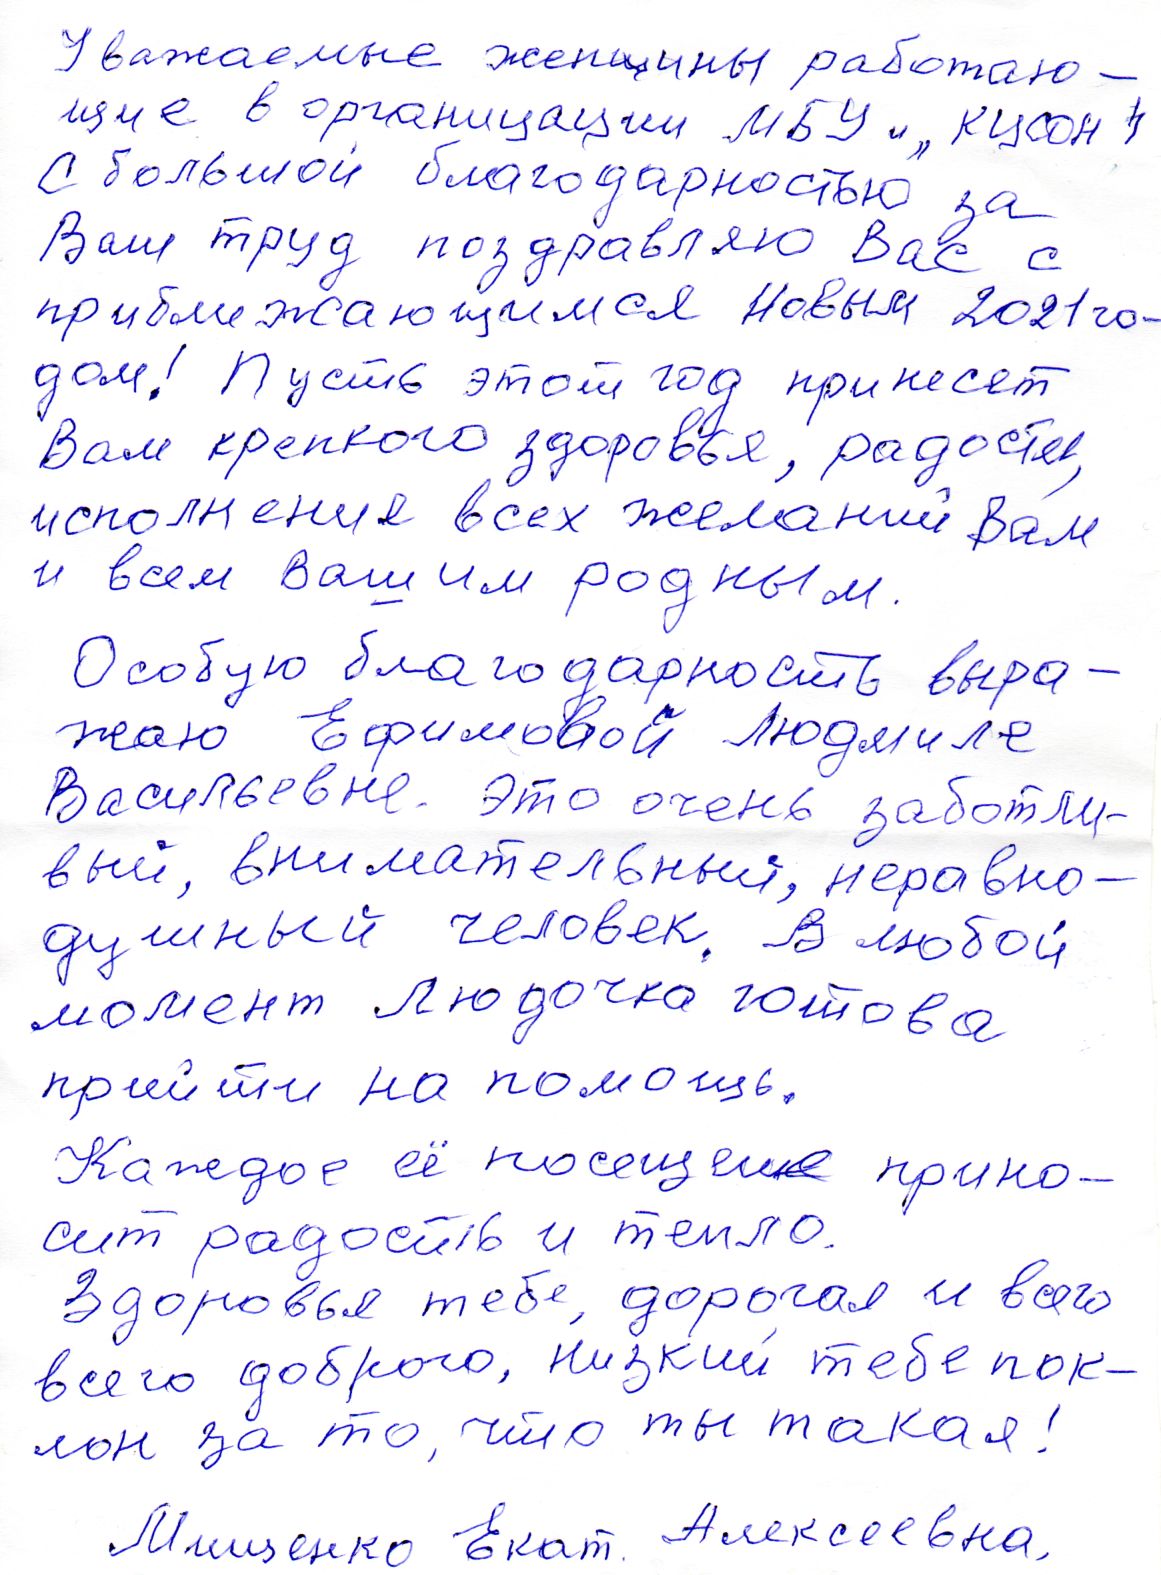 Уважаемые женщины работаю-
щие в организации МБУ „ КЦСОН"
С большой благодарностью за
Ваш труд поздравляю Вас с
приближающимся Новым 2021 го-
дом! Пусть этот год принесет
Вам крепкого здоровья, радости,
исполнения всех желаний Вам
и всем Вашим родным.
Особую благодарность выра-
жаю Ефимовой Людмиле
Васильевне. Это очень заботли-
вый, внимательный, неравно-
душный человек. В любой
момент Людочка готова
прийти на помощь.
Каждое её посещение прино-
сит радость и тепло.
Здоровья тебе, дорогая и всего
всего доброго, низкий тебе пок-
лон за то, что ты такая!
Мищенко Екат. Алексеевна.